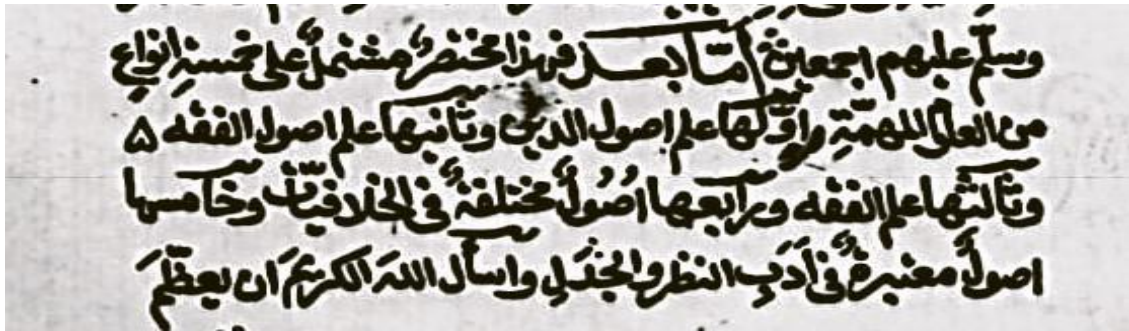 وسلّم عليهم اجمعين أمّا بعد فهذا مختصرٌ مشتملٌ على خمسةِ انواعٍ
من العلوم المهمّةِ واوّلها علم اصول الدين وثانيها علم اصول الفقه ۵
وثالثها علم الفقه ورابعها اصُولٌ مختلفةٌ في الخلافيّات وخامسها
اصولٌ معتبرةٌ في أدَبِ النظر والجَدَلِ واسأل اللهَ الكريمَ ان يعظّمَ